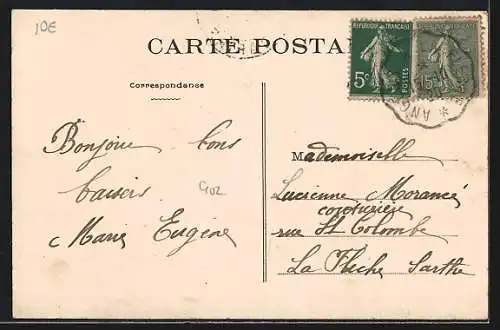 10E
CARTE POSTA
RÉPUBLIQUE FRANÇAISE
5c
POSTES
15c
ANG
Correspondance
Bonjour bons
baisers
Marie Eugène
Mademoiselle
Lucienne Morancé
couturière
rue St Colombe
La Flèche Sarthe